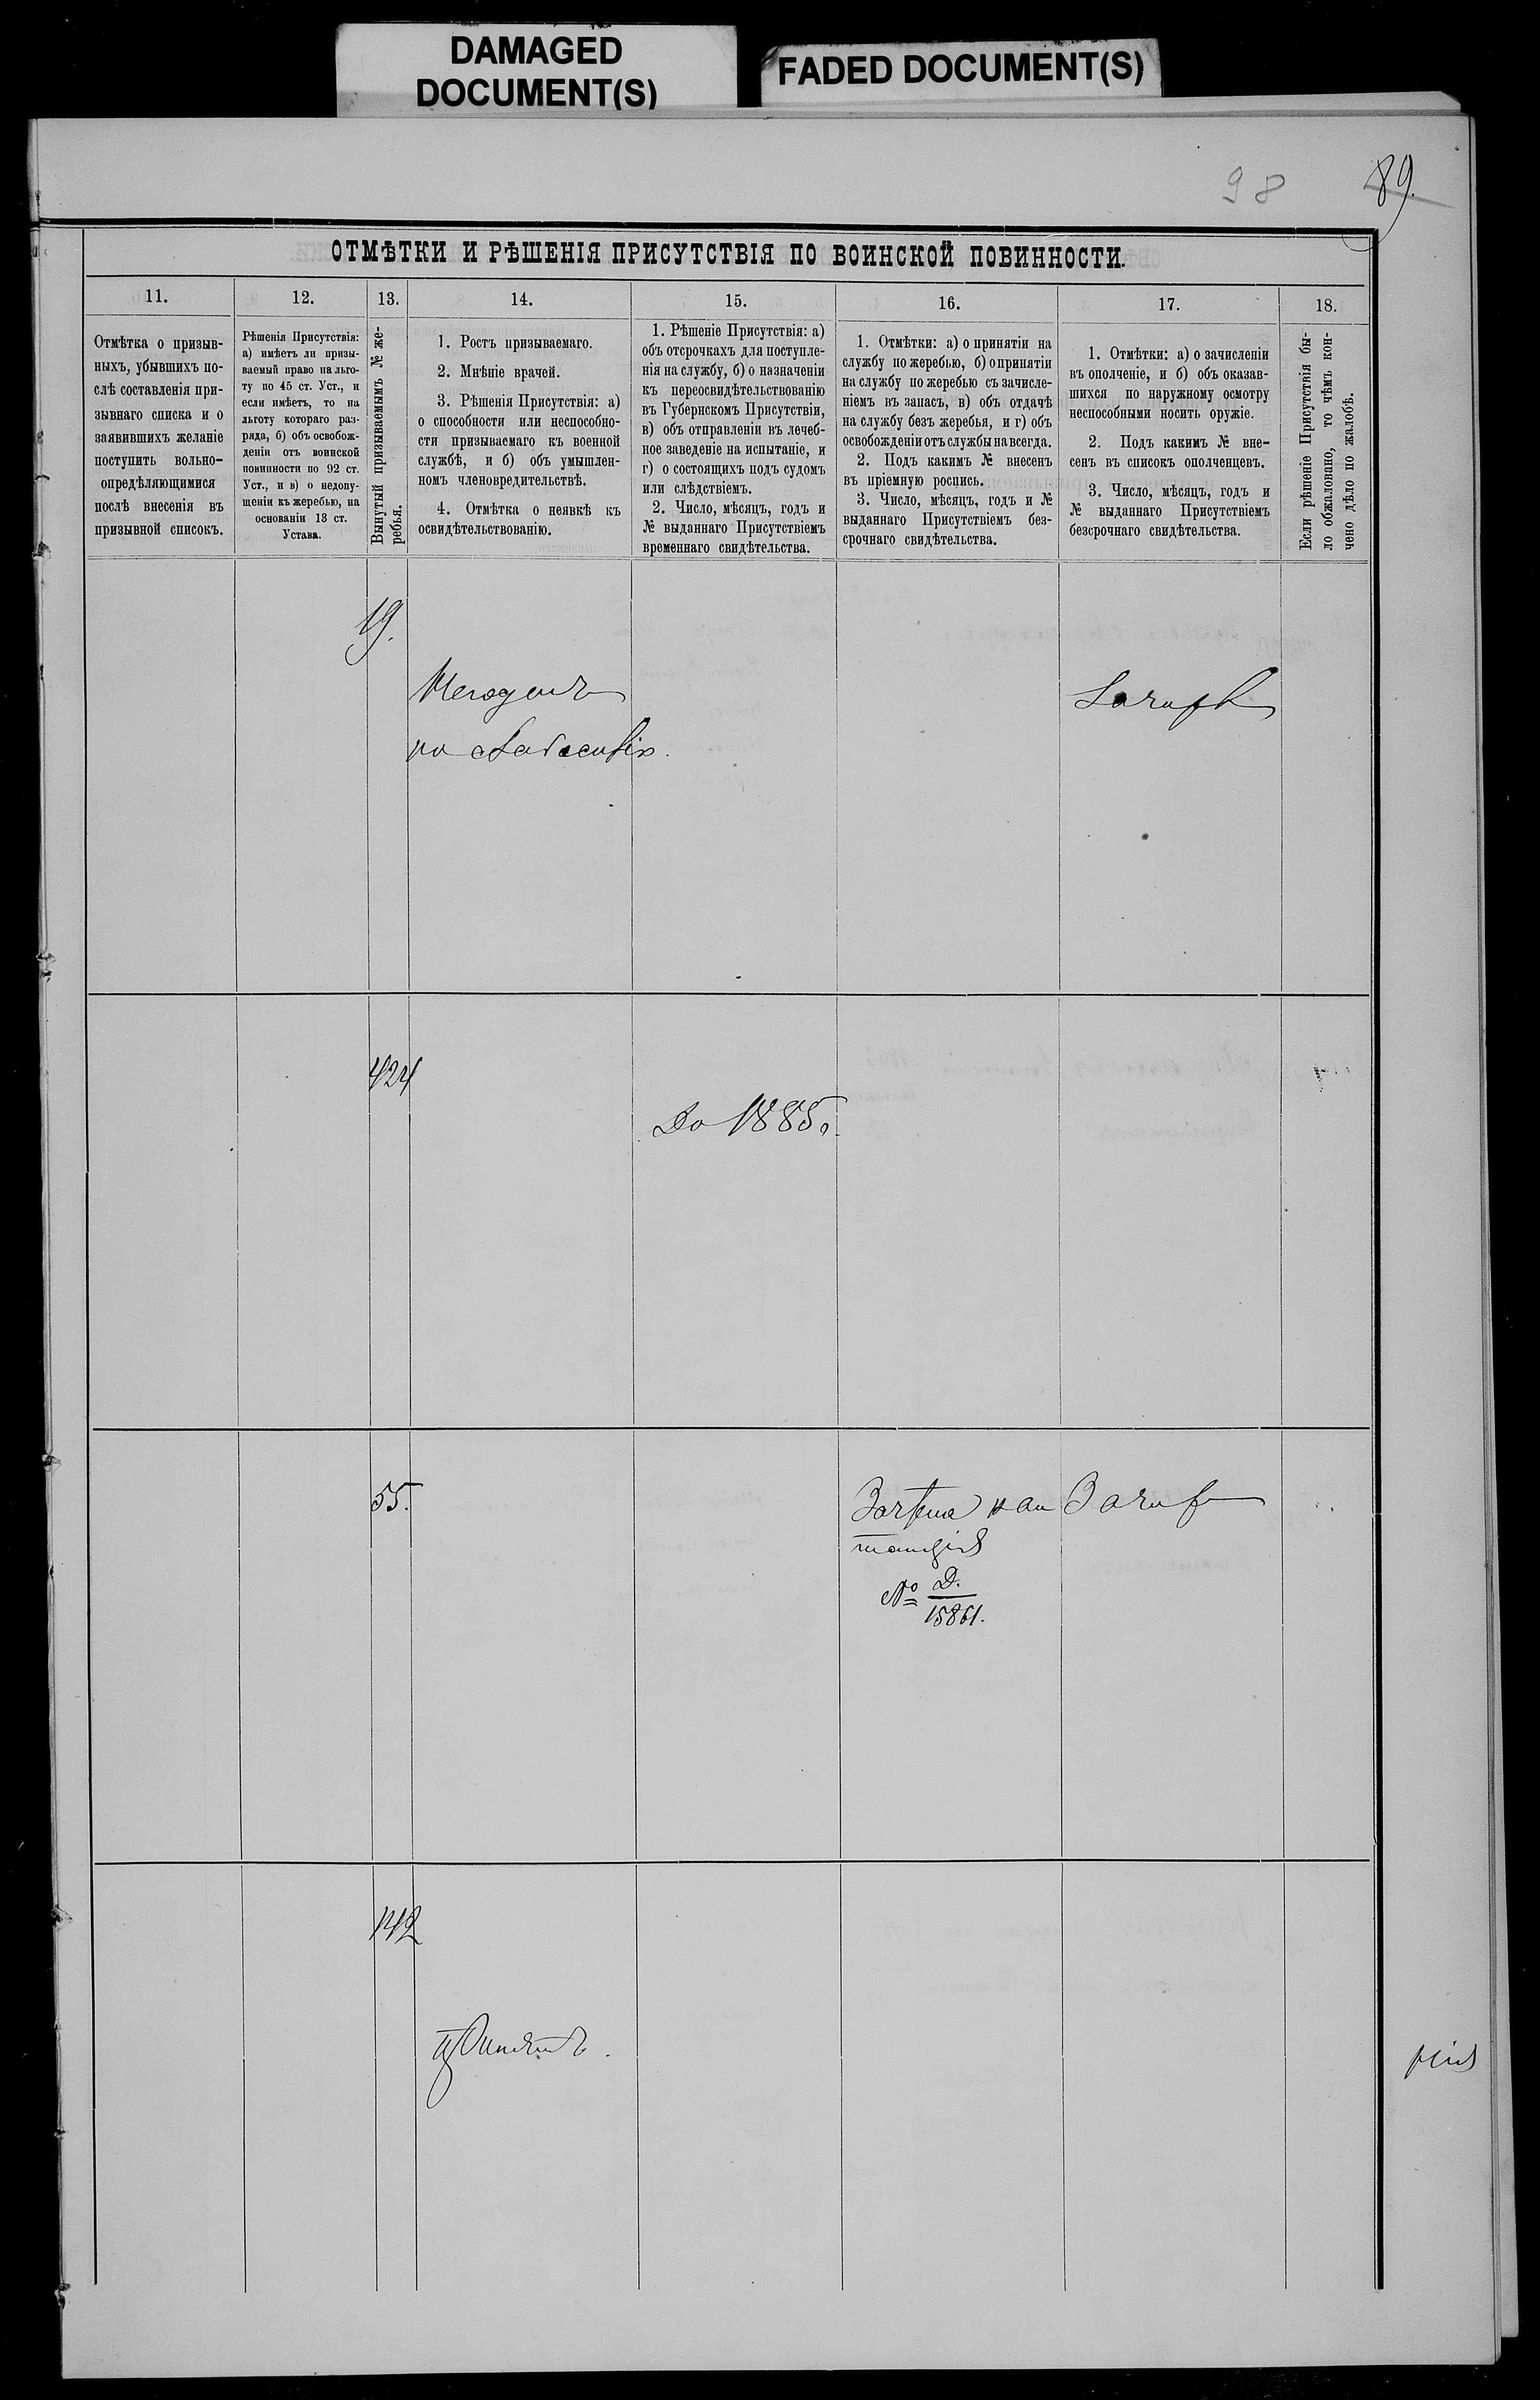 DAMAGED
DOCUMENT(S)
FADED DOCUMENT(S)
98
89.
ОТМѢТКИ И РѢШЕНІЯ ПРИСУТСТВІЯ ПО ВОИНСКОЙ ПОВИННОСТИ.
11.
Отмѣтка о призыв-
ныхъ, убывшихъ по-
слѣ составленія при-
зывнаго списка и о
заявившихъ желаніе
поступить вольно-
опредѣляющимися
послѣ внесенія въ
призывной списокъ.
12.
Рѣшенія Присутствія:
а) имѣетъ ли призы-
ваемый право на льго-
ту по 45 ст. Уст., и
если имѣетъ, то на
льготу котораго раз-
ряда, б) объ освобож-
деніи отъ воинской
повинности по 92 ст.
Уст., и в) о недопу-
щеніи къ жеребью, на
основаніи 13 ст.
Устава.
13.
Вынутый призываемымъ № же-
ребья.
14.
1. Ростъ призываемаго.
2. Мнѣніе врачей.
3. Рѣшенія Присутствія: а)
о способности или неспособно-
сти призываемаго къ военной
службѣ, и б) объ умышлен-
номъ членовредительствѣ.
4. Отмѣтка о неявкѣ къ
освидѣтельствованію.
15.
1. Рѣшеніе Присутствія: а)
объ отсрочкахъ для поступле-
нія на службу, б) о назначеніи
къ переосвидѣтельствованію
въ Губернскомъ Присутствіи,
в) объ отправленіи въ лечеб-
ное заведеніе на испытаніе, и
г) о состоящихъ подъ судомъ
или слѣдствіемъ.
2. Число, мѣсяцъ, годъ и
№ выданнаго Присутствіемъ
временнаго свидѣтельства.
16.
1. Отмѣтки: а) о принятіи на
службу по жеребью, б) о принятіи
на службу по жеребью съ зачисле-
ніемъ въ запасъ, в) объ отдачѣ
на службу безъ жеребья, и г) объ
освобожденіи отъ службы навсегда.
2. Подъ какимъ № внесенъ
въ пріемную роспись.
3. Число, мѣсяцъ, годъ и №
выданнаго Присутствіемъ без-
срочнаго свидѣтельства.
17.
1. Отмѣтки: а) о зачисленіи
въ ополченіе, и б) объ оказав-
шихся по наружному осмотру
неспособными носить оружіе.
2. Подъ какимъ № вне-
сенъ въ списокъ ополченцевъ.
3. Число, мѣсяцъ, годъ и
№ выданнаго Присутствіемъ
безсрочнаго свидѣтельства.
18.
Если рѣшеніе Присутствія бы-
ло обжаловано, то чѣмъ кон-
чено дѣло по жалобѣ.
19.
424
До 1885 г.
55.
№ D.
15861.
142